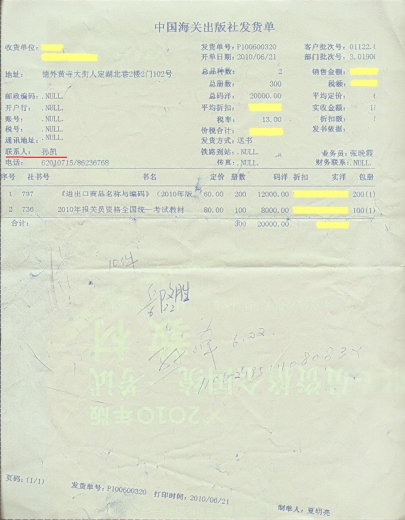 中国海关出版社发货单
收货单位: 发货单号: P100600320 客户批次号: 01122.
开单日期: 2010/06/21 部门批次号: 3.01908
总品种数: 2 销售金额:
地址: 德外黄寺大街人定湖北巷2楼2门102号 总册数: 300 税额:
邮政编码: .NULL. 总码洋: 20000.00 平均定价:
开户行: .NULL. 平均折扣: 实收金额:
账号: .NULL. 税率: 13.00 折扣额:
税号: .NULL. 价税合计: 发书依据:
通讯地址: .NULL. 发货方式: 送书
联系人: 孙凯 铁路到站: .NULL. 业务员: 张晓霞
电话: 62010715/86236768 传真: .NULL. 财务联系: .NULL.
序号 社书号 书名 定价 册数 码洋 折扣 实洋 包册
1 737 《进出口商品名称与编码》(2010年版 60.00 200 12000.00 200(1)
2 736 2010年报关员资格全国统一考试教材 80.00 100 8000.00 100(1)
合计: 300 20000.00
6.22
6.22
教材
资格全国统一考试
2010年版
页码: (1/1) 发货单号: P100600320 打印时间: 2010/06/21 制单人: 夏明亮